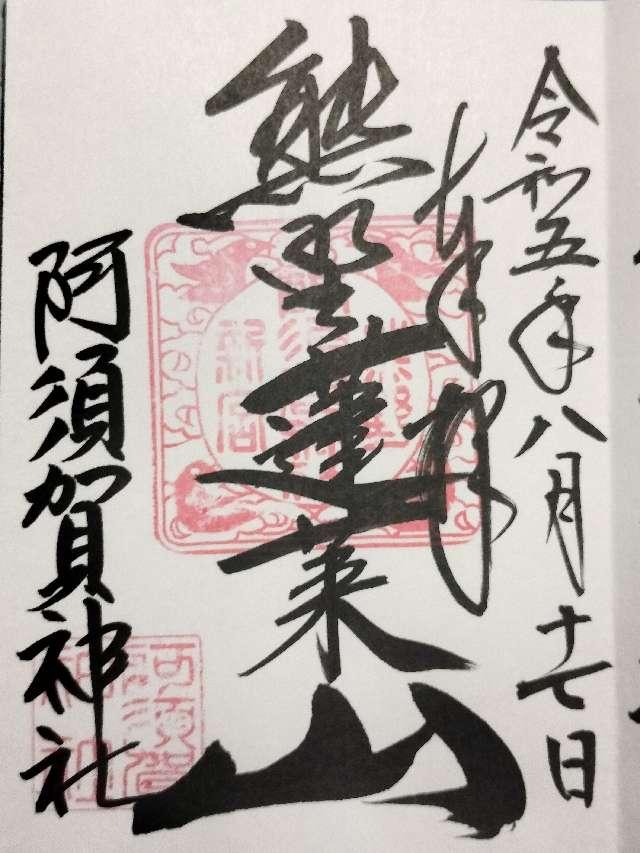 令和五年八月十七日
奉拝
熊野蓬莱山
阿須賀神社